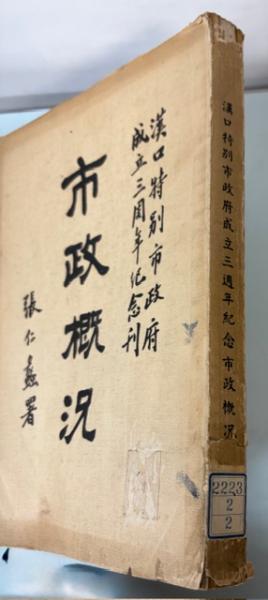 漢口特別市政府
成立三周年紀念刊
市政概况
張仁蠡署
漢口特別市政府成立三週年紀念市政概況
2223
2
2